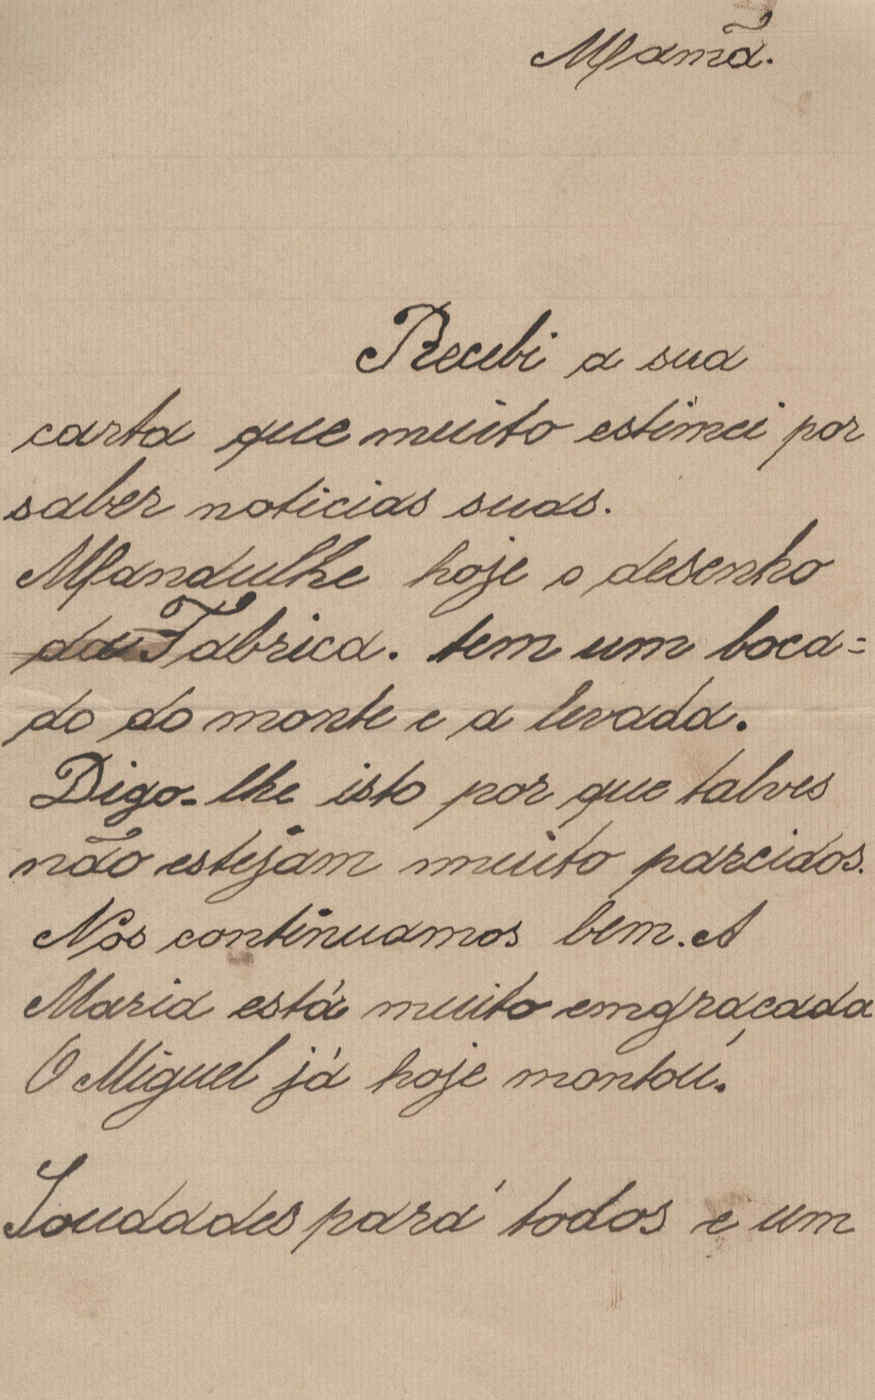 Mamã.
Recebi a sua
carta que muito estimei por
saber noticias suas.
Mandulhe hoje o desenho
da Fabrica. tem um boca=
do do monte e a levada.
Digo-lhe isto por que talves
não estejam muito parcidos.
Nós continuamos bem. A
Maria está muito emgraçada
O Miguel já hoje montou.
Soudades pará todos e um